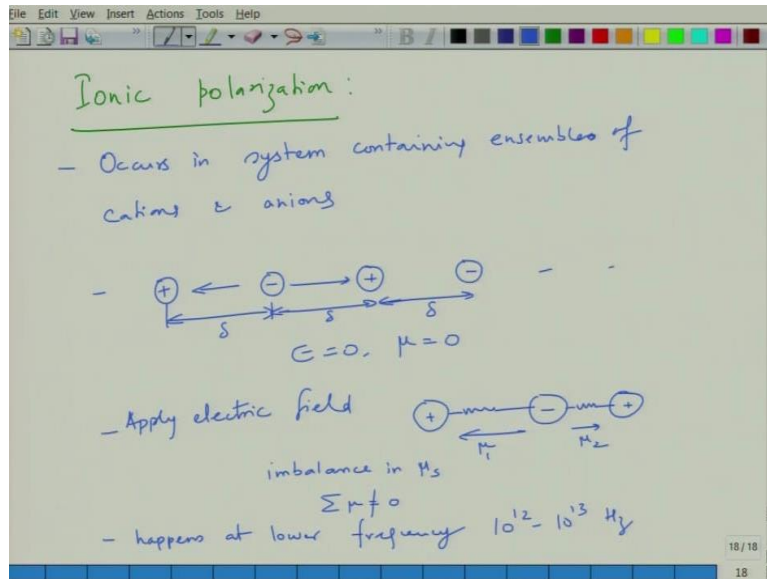 File Edit View Insert Actions Tools Help
B I
Ionic polarization :
- Occurs in system containing ensembles of
cations & anions
- + ← - → + - - -
δ δ δ
E = 0, μ = 0
- Apply electric field + - +
μ₁ μ₂
imbalance in μs
Σμ ≠ 0
- happens at lower frequency 10¹² - 10¹³ Hz
18 / 18
18